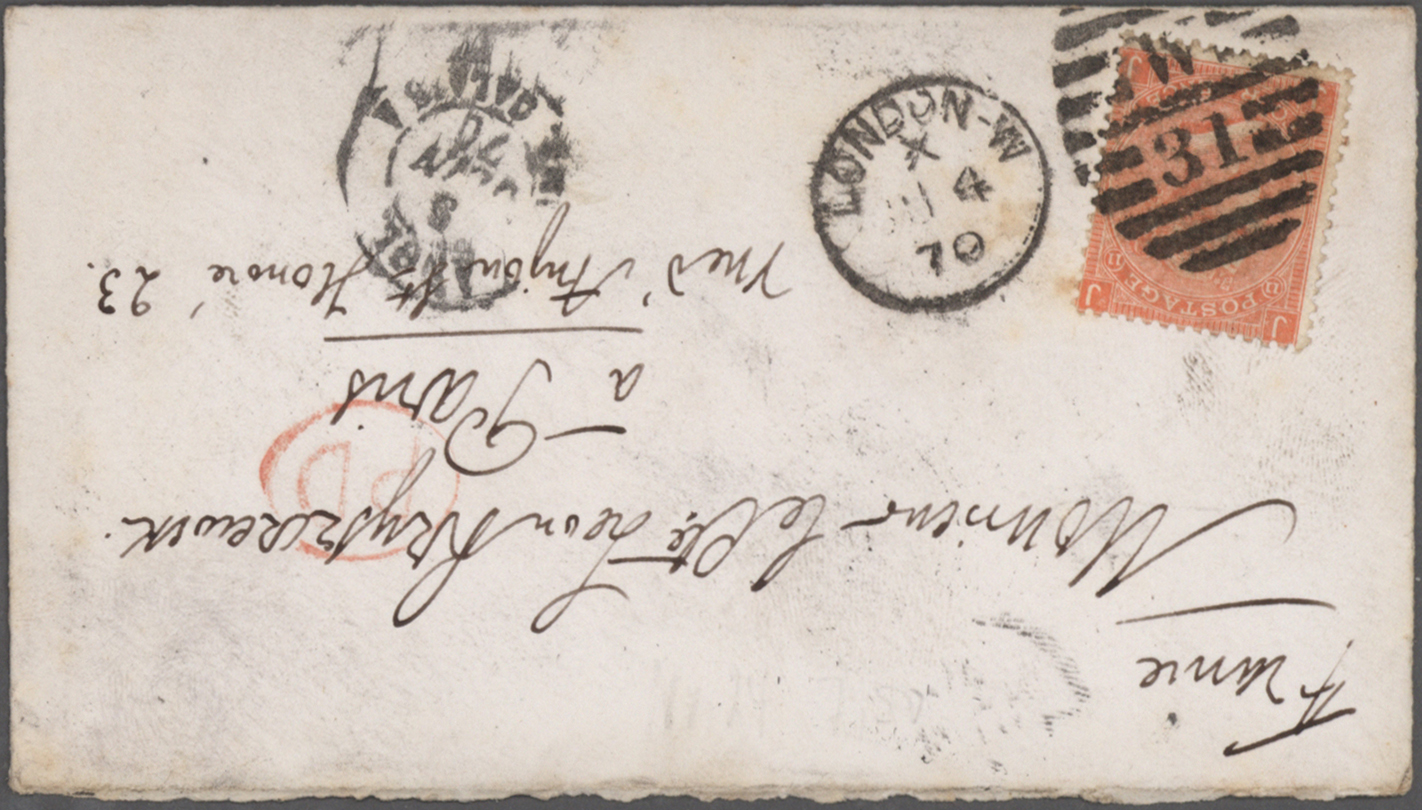 France
Monsieur le Cte Leon
à Paris
rue d'Anjou St Honoré 23.
PD
LONDON-W
X
4
70
W
31
POSTAGE
J
J
J